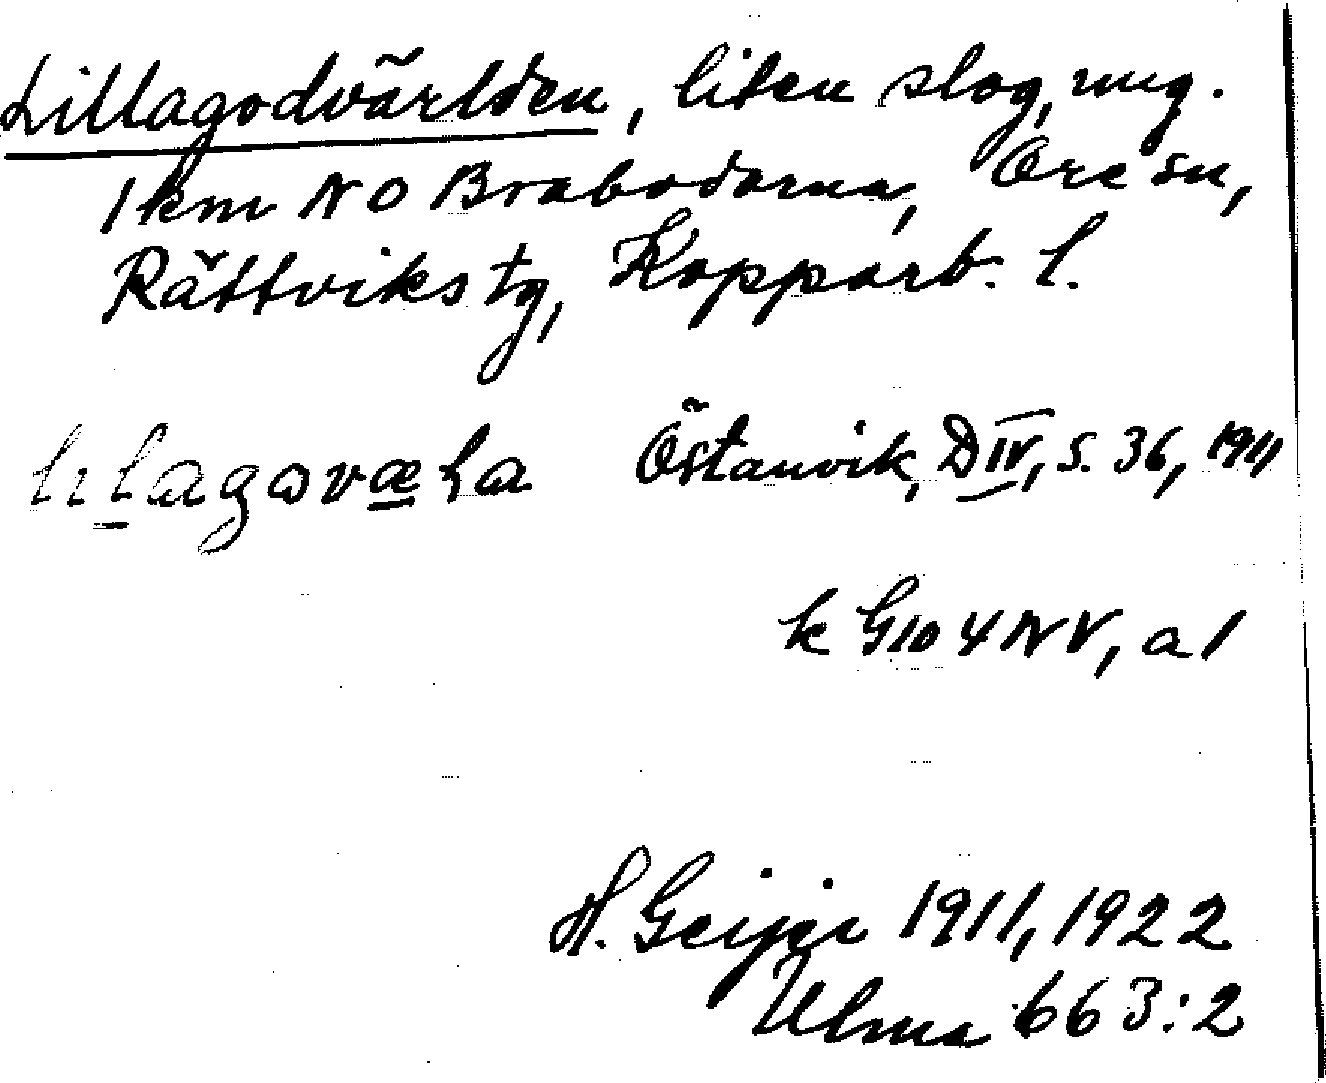 Lillagodvärlden, liten slog, ung.
1 km NO Brabodarna, Ore sn,
Rättviks tg, Kopparb. l.
Östanvik, D IV, s. 36, 1911
k G10 4 NV, a 1
H. Geijer 1911, 1922
Ulma 663:2